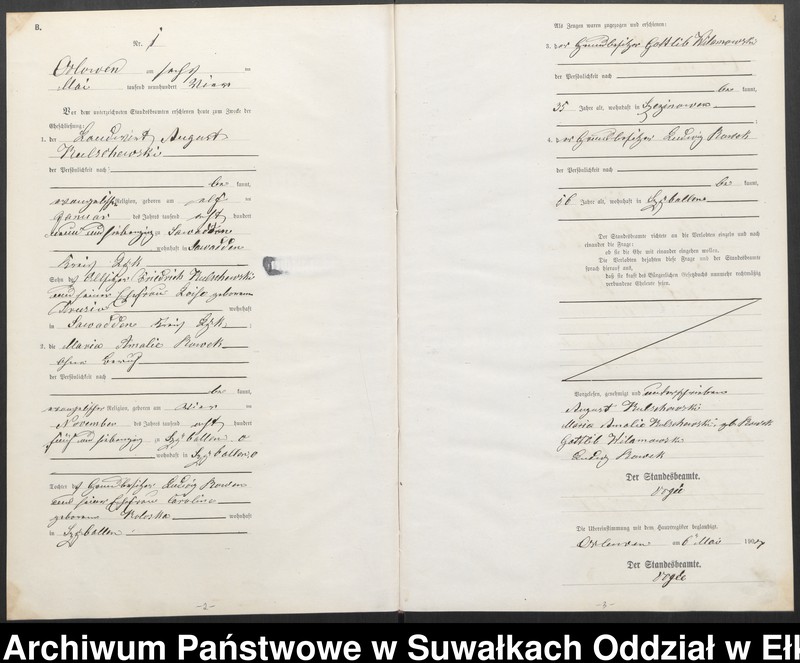 B.
Nr. 1
Orlowen am sechs ten
Mai tausend neunhundert vier
Vor dem unterzeichneten Standesbeamten erschienen heute zum Zwecke der
Eheschließung:
1. der Landwirt August
Kulschewski
der Persönlichkeit nach
be kannt,
evangelischer Religion, geboren am elf ten
Januar des Jahres tausend acht hundert
neun und siebenzig zu Sawadden
wohnhaft in Sawadden
Kreis Lyk
Sohn des Altsitzer Friedrich Kulschewski
und seiner Ehefrau Loise geborenen
wohnhaft
in Sawadden Kreis Lyk ;
2. die Maria Amalie Kowek
ohne Beruf
der Persönlichkeit nach
be kannt,
evangelischer Religion, geboren am vier ten
November des Jahres tausend acht hundert
fünf und siebenzig zu
wohnhaft in
Tochter des Grundbesitzer Ludwig
und seiner Ehefrau Caroline
geborene wohnhaft
in
-2-
Als Zeugen waren zugezogen und erschienen:
3. der Grundbesitzer Gottlib Wilamowski
der Persönlichkeit nach
be kannt,
35 Jahre alt, wohnhaft in
4. der Grundbesitzer Ludwig Kowek
der Persönlichkeit nach
be kannt,
Jahre alt, wohnhaft in
Der Standesbeamte richtete an die Verlobten einzeln und nach
einander die Frage:
ob sie die Ehe mit einander eingehen wollen.
Die Verlobten bejahten diese Frage und der Standesbeamte
sprach hierauf aus,
daß sie kraft des Bürgerlichen Gesetzbuchs nunmehr rechtmäßig
verbundene Eheleute seien.
Vorgelesen, genehmigt und unterschrieben
August Kulschewski
Maria Amalie Kulschewski, geb. Kowek
Gottlib Wilamowski
Ludwig Kowek
Der Standesbeamte.
Die Übereinstimmung mit dem Hauptregister beglaubigt.
Orlowen am 6ten Mai 1904
Der Standesbeamte.
-3-
Archiwum Państwowe w Suwałkach Oddział w Ełk